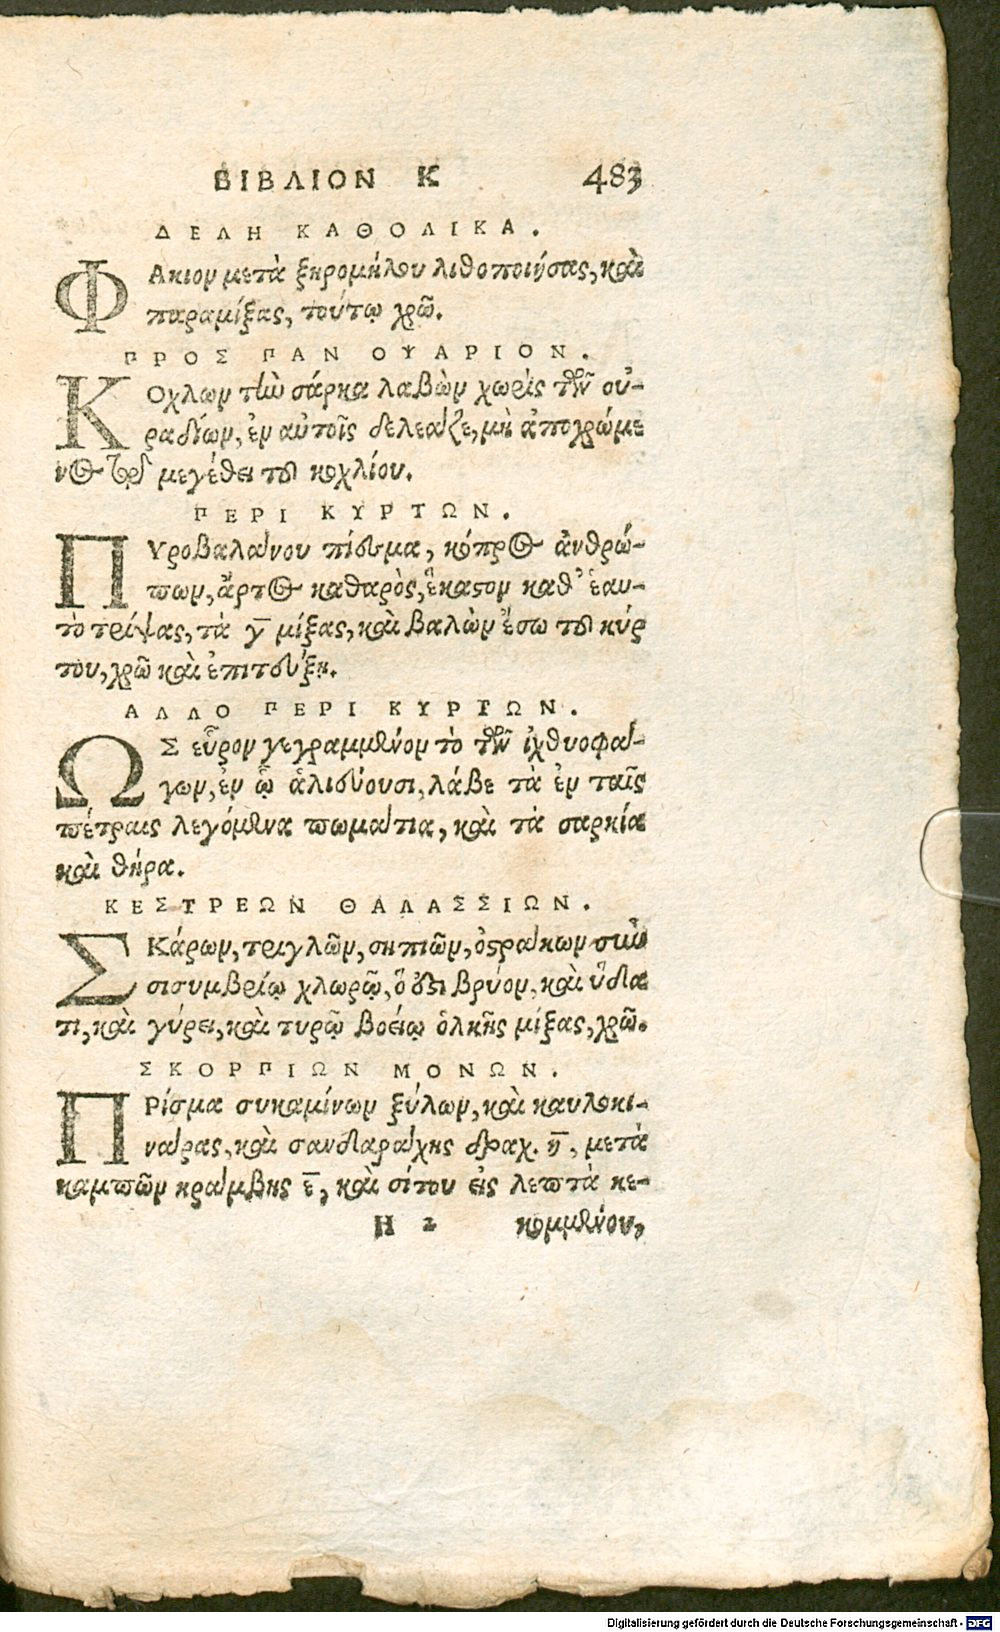 ΒΙΒΛΙΟΝ Κ 483
ΔΕΛΗ ΚΑΘΟΛΙΚΑ.
ΦΑκιον μετὰ ξηρομήλου λιθοποιήσας, καὶ
παραμίξας, τούτῳ χρῶ.
ΠΡΟΣ ΠΑΝ ΟΨΑΡΙΟΝ.
ΚΟχλων τὴν σάρκα λαβὼν χωρὶς τῶν οὐ-
ραδίων, ἐν αὐτοῖς δελέαζε, μὴ ἀποχρώμε
νος μεγέθει τοῦ κοχλίου.
ΠΕΡΙ ΚΥΡΤΩΝ.
ΠΥροβαλάνου πίεσμα, κόπρος ἀνθρώ-
πων, ἄρτος καθαρὸς, ἕκαστον καθ᾽ ἑαυ-
τὸ τρίψας, τὰ γ̅ μίξας, καὶ βαλὼν ἔσω τοῦ κύρ
του, χρῶ καὶ ἐπιτεύξῃ.
ΑΛΛΟ ΠΕΡΙ ΚΥΡΤΩΝ.
ΩΣ εὗρον γεγραμμένον τὸ τῶν ἰχθυοφά-
γων, ἐν ᾧ ἁλιεύουσι, λάβε τὰ ἐν ταῖς
πέτραις λεγόμενα πωμάτια, καὶ τὰ σαρκία
καὶ θήρα.
ΚΕΣΤΡΕΩΝ ΘΑΛΑΣΣΙΩΝ.
ΣΚάρων, τριγλῶν, σηπιῶν, ὀστράκων σὺν
σισυμβρίῳ χλωρῷ, ὅ ἐστι βρύον, καὶ ὕδα
τι, καὶ γύρει, καὶ τυρῷ βοείῳ ὁλκῆς μίξας, χρῶ.
ΣΚΟΡΠΙΩΝ ΜΟΝΩΝ.
ΠΡίσμα συκαμίνων ξύλων, καὶ καυλοκι-
νάρας, καὶ σανδαράχης δραχ. η̅, μετὰ
καμπῶν κράμβης ε̅, καὶ σίτου εἰς λεπτὰ κε-
Η 2 κομμένου,
Digitalisierung gefördert durch die Deutsche Forschungsgemeinschaft - DFG